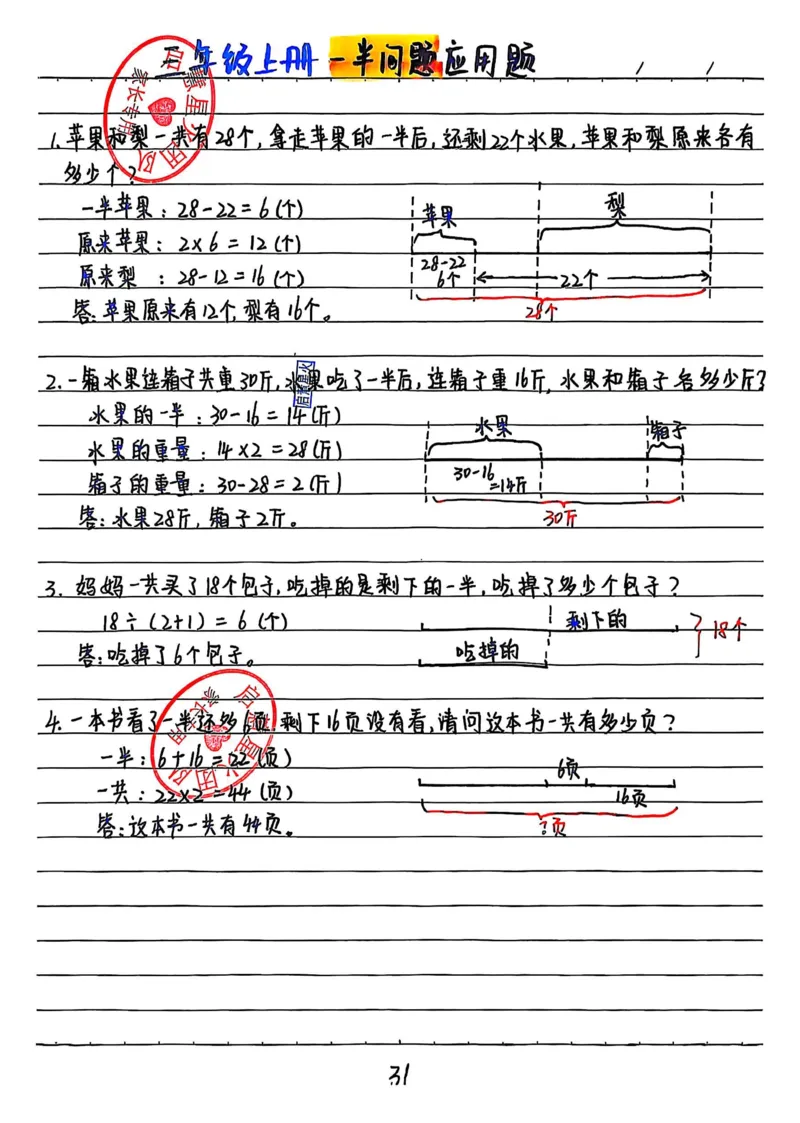 三年级上册 一半问题应用题
1. 苹果和梨一共有28个，拿走苹果的一半后，还剩22个水果，苹果和梨原来各有
多少个？
一半苹果：28-22=6(个)
原来苹果：2×6=12(个)
原来梨：28-12=16(个)
答：苹果原来有12个，梨有16个。
苹果
梨
28-22
6个
22个
28个
2. 一箱水果连箱子共重30斤，水果吃了一半后，连箱子重16斤，水果和箱子各多少斤？
水果的一半：30-16=14(斤)
水果的重量：14×2=28(斤)
箱子的重量：30-28=2(斤)
答：水果28斤，箱子2斤。
水果
箱子
30-16
=14斤
30斤
3. 妈妈一共买了18个包子，吃掉的是剩下的一半，吃掉了多少个包子？
18÷(2+1)=6(个)
答：吃掉了6个包子。
剩下的
吃掉的
18个
4. 一本书看了一半还多6页，剩下16页没有看，请问这本书一共有多少页？
一半：6+16=22(页)
一共：22×2=44(页)
答：这本书一共有44页。
6页
16页
？页
31